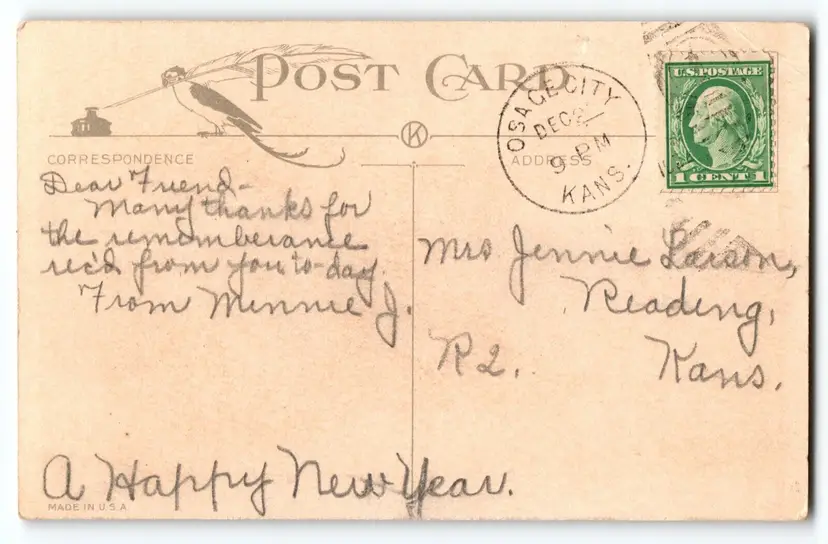 POST CARD
OSAGE CITY
DEC 
9 PM
KANS.
U.S. POSTAGE
1 CENT 1
K
CORRESPONDENCE
ADDRESS
Dear Friend-
Many thanks for
the rememberance
rec'd from you to-day.
From Minnie J.
A Happy New Year.
Mrs Jennie Larson,
Reading,
R 2. Kans.
MADE IN U.S.A